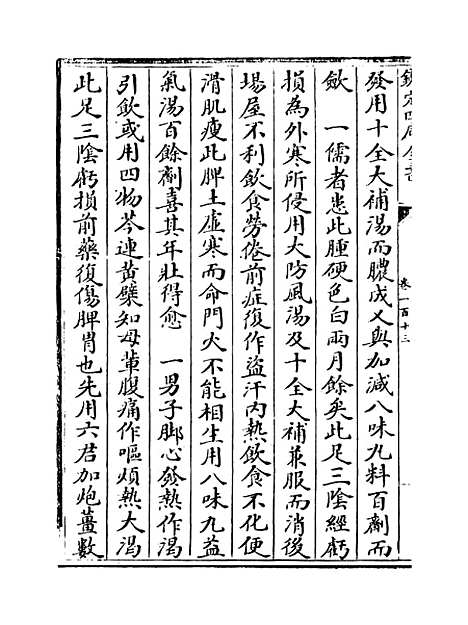 欽定四庫全書
卷一百十三
發用十全大補湯而膿成又與加減八味丸料百劑而
歛　一儒者患此腫硬色白兩月餘矣此足三陰經虧
損為外寒所侵用大防風湯及十全大補兼服而消後
場屋不利飲食勞倦前症復作盜汗内熱飲食不化便
滑肌瘦此脾土虛寒而命門火不能相生用八味丸益
氣湯百餘劑喜其年壯得愈　一男子脚心發熱作渴
引飲或用四物芩連黄蘗知母軰腹痛作嘔煩熱大渴
此足三陰虧損前藥復傷脾胃也先用六君加炮薑數